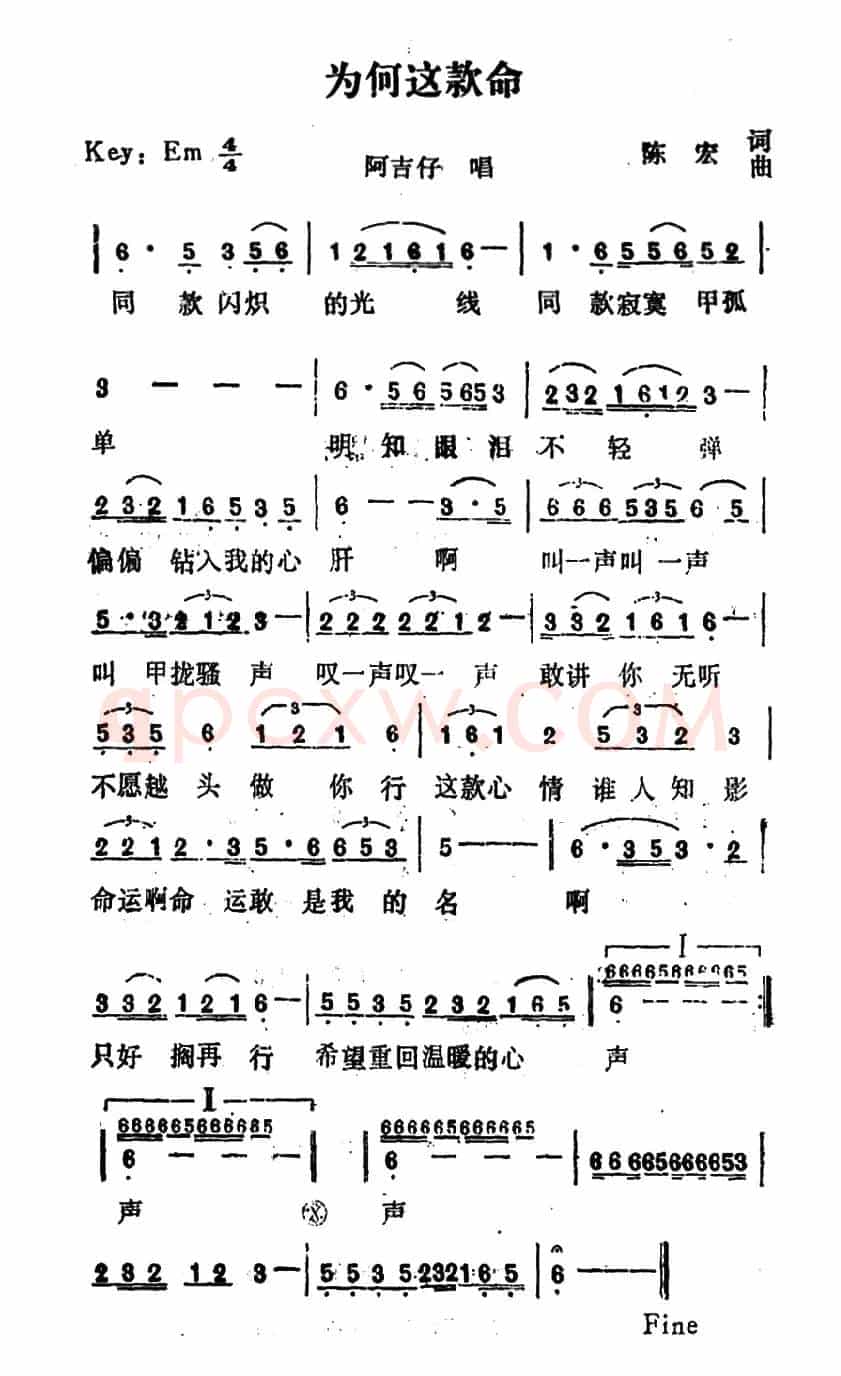 为何这款命
Key: Em 4/4 阿吉仔 唱 陈宏 词曲
6· 5 3 56 | 1 21616— | 1·6 556 52 |
同款闪炽的光线同款寂寞甲孤
3 — — — | 6· 56 5653 | 232 1612 3— |
单 明知眼泪不轻弹
232 165 35 | 6 — — 3·5 | 666 535 6 5 |
偏偏钻入我的心肝啊叫一声叫一声
5·3 212 3— | 222 2212— | 332 1616— |
叫甲拢骚声叹一声叹一声敢讲你无听
535 6 121 6 | 161 2 532 3 |
不愿越头做你行这款心情谁人知影
221 2·35·6 653 | 5——— | 6·353·2 |
命运啊命运敢是我的名啊
I
6666656666665
332 1216— | 5535 232 165 | 6 - - - :|
只好搁再行希望重回温暖的心声
I
66666566666685 66666566666665
6 — — — | 6 — — — | 66 6665666653
声 声
232 12 3— | 5535 232165 | 6——— |
Fine
gpcxw.com